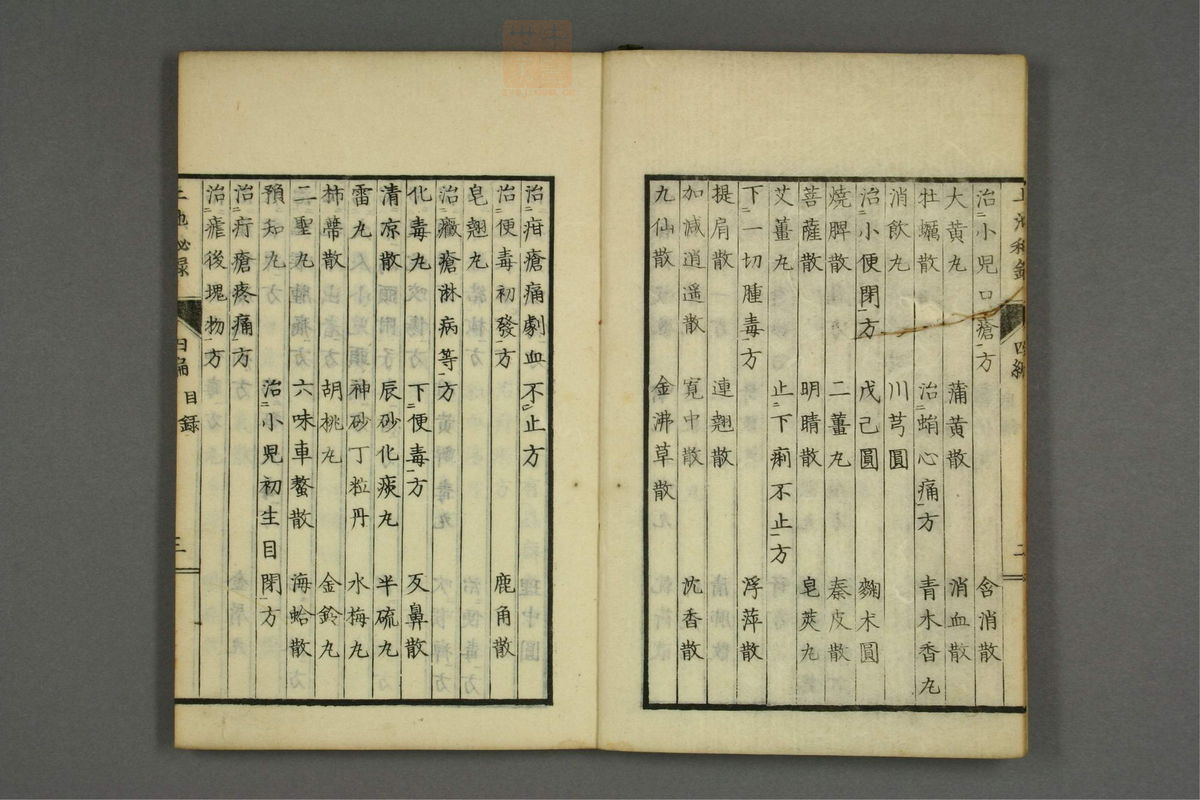 治小兒口瘡方 含消散
大黄丸 蒲黄散 消血散
牡蠣散 治蛔心痛方 青木香丸
消飲丸 川芎圓
治小便閉方 戊己圓 麴朮圓
燒脾散 二薑丸 秦皮散
菩薩散 明睛散 皂莢丸
艾薑丸 止下痢不止方
下一切腫毒方 浮萍散
提肩散 連翹散
加减逍遥散 寛中散 沈香散
九仙散 金沸草散
四編 目録 二
治疳瘡痛劇血不止方
治便毒初發方 鹿角散
皂翹丸
治黴瘡淋病等方
化毒丸 下便毒方 反鼻散
清凉散 辰砂化痰丸 半硫丸
雷丸散 神砂丁粒丹 水梅丸
柿蔕散 胡桃丸 金鈴丸
二聖丸 六味車螯散 海蛤散
預知丸 治小兒初生目閉方
治疔瘡疼痛方
治瘧後塊物方
上池秘録 四編 目録 三